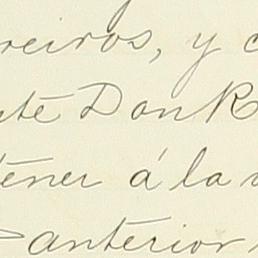 reiros, y
te Don R
tener á la
anterior